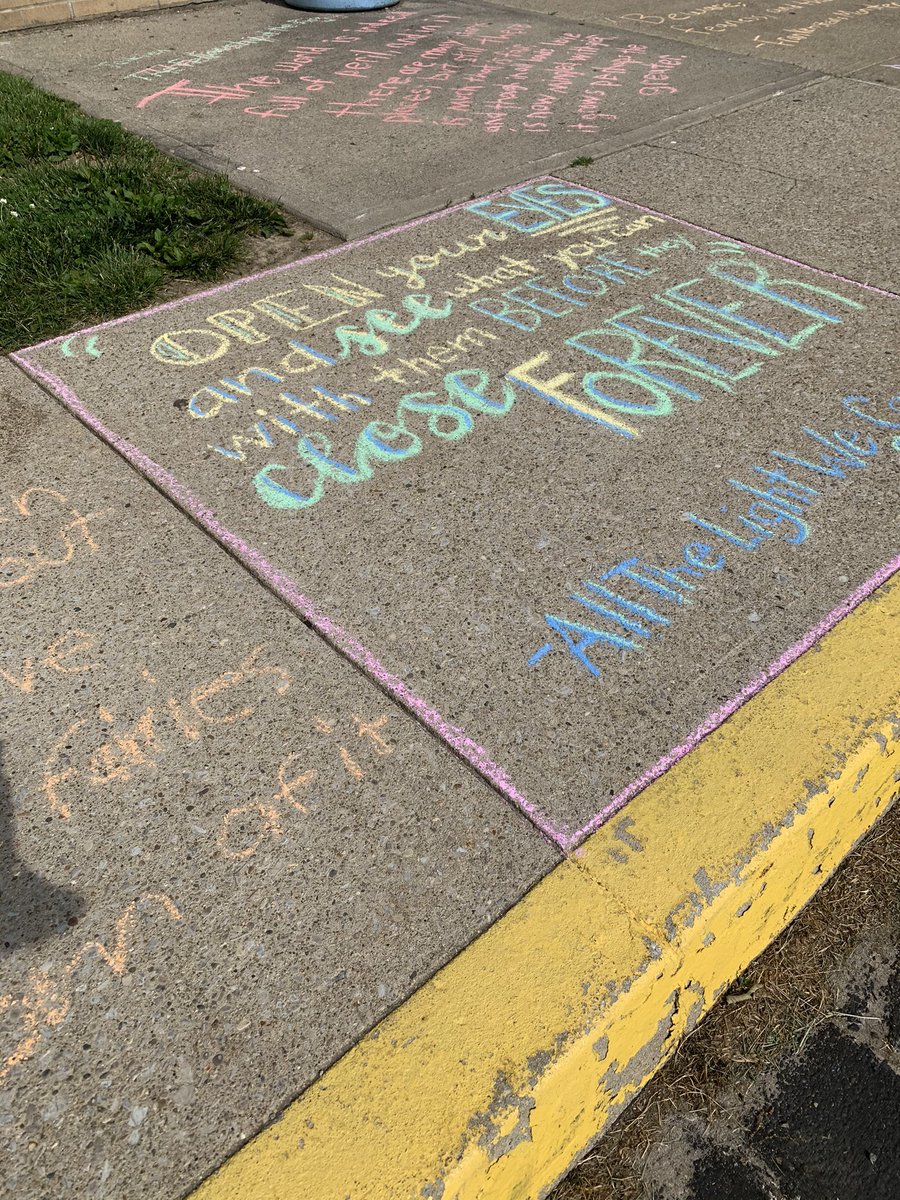 Beware,
The world is indeed
full of peril, and in it
there are many dark
places; but still there
is much that is fair,
is now mingled with
it grows perhaps the
greater
"OPEN your EYES
and see what you can
with them BEFORE they
close FOREVER"
- All The Light We
fairies
of it